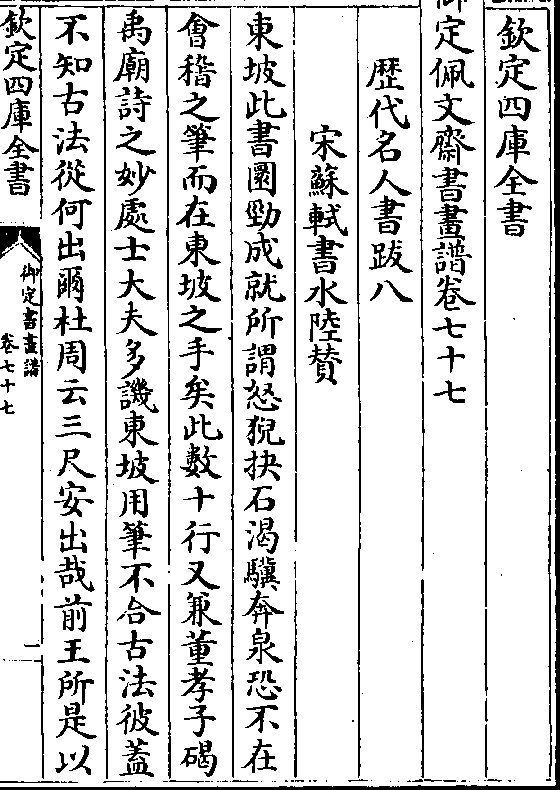 欽定四庫全書
御定佩文齋書畫譜卷七十七
歴代名人書跋八
宋蘇軾書水陸賛
東坡此書圜勁成就所謂怒猊抉石渴驥奔泉恐不在
會稽之筆而在東坡之手矣此數十行又兼董孝子碣
禹廟詩之妙處士大夫多譏東坡用筆不合古法彼蓋
不知古法從何出爾杜周云三尺安出哉前王所是以
欽定四庫全書
御定書畫譜
卷七十七
一